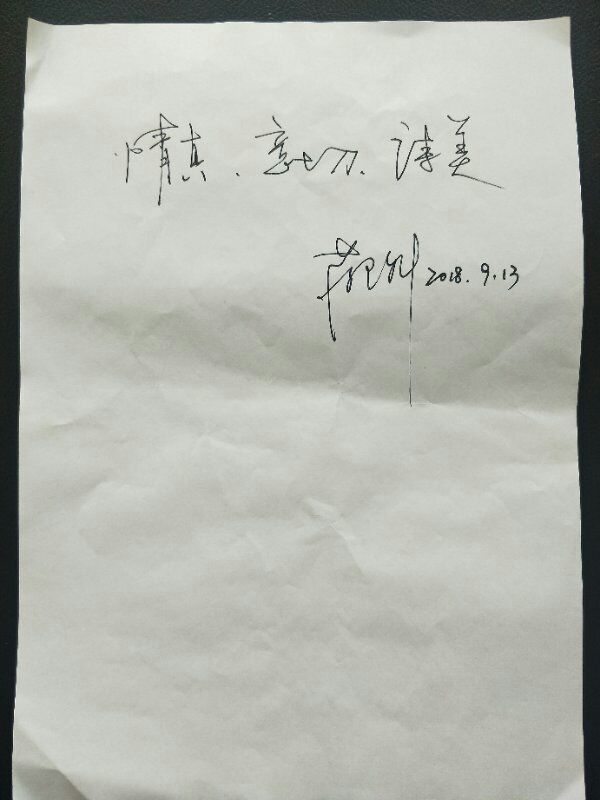 情真、意切、诗美
2018.9.13